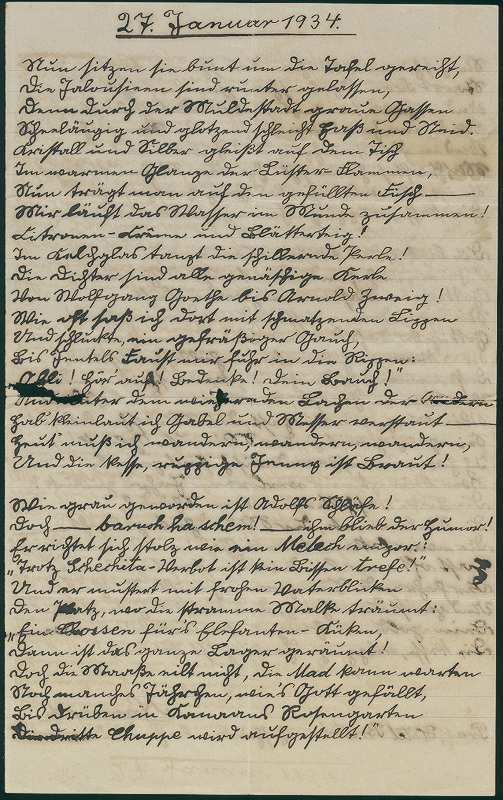 27. Januar 1934.
Nun sitzen sie bunt um die Tafel gereiht,
Die Jalousieen sind runter gelassen,
Denn durch der Muldestadt graue Gassen
Scheeläugig und glotzend schleicht Haß und Neid.
Kristall und Silber gleißt auf dem Tisch
Im warmen Glanze der Lüster-Flammen,
Nun trägt man auf den gefüllten Fisch —
Mir läuft das Wasser im Munde zusammen!
Citronen-Crême und Blätterteig!
Im Kelchglas tanzt die schillernde Perle!
Die Dichter sind alle genäschige Kerle
Von Wolfgang Goethe bis Arnold Zweig!
Wie oft saß ich dort mit schmatzenden Lippen
Und schluckte, ein gefräßiger Gauch,
Bis Jentels Faust mir fuhr in die Rippen:
! Hör auf! Bedenke! Dein Bauch!"
Und unter dem wiehernden Lachen der
Hab kleinlaut ich Gabel und Messer verstaut —
Heut muß ich wandern, wandern, wandern,
Und die kesse, ruppige Jenny ist Braut!
Wie grau geworden ist Adolfs Schläfe!
Doch — baruch ha schem! — ihm blieb der Humor!
Er richtet sich stolz wie ein Melech empor:
„Trotz Schechita-Verbot ist kein Bissen trefe!"
Und er mustert mit frohen Vaterblicken
Den Platz, wo die stramme Malke träumt:
„Ein für's Elefanten-Küken,
Dann ist das ganze Lager geräumt!
Doch die Maaße eilt nicht, die Mad kann warten
Noch manches Jährchen, wie's Gott gefällt,
Bis drüben in Kanaans Rosengarten
Die dritte Chuppe wird aufgestellt!"